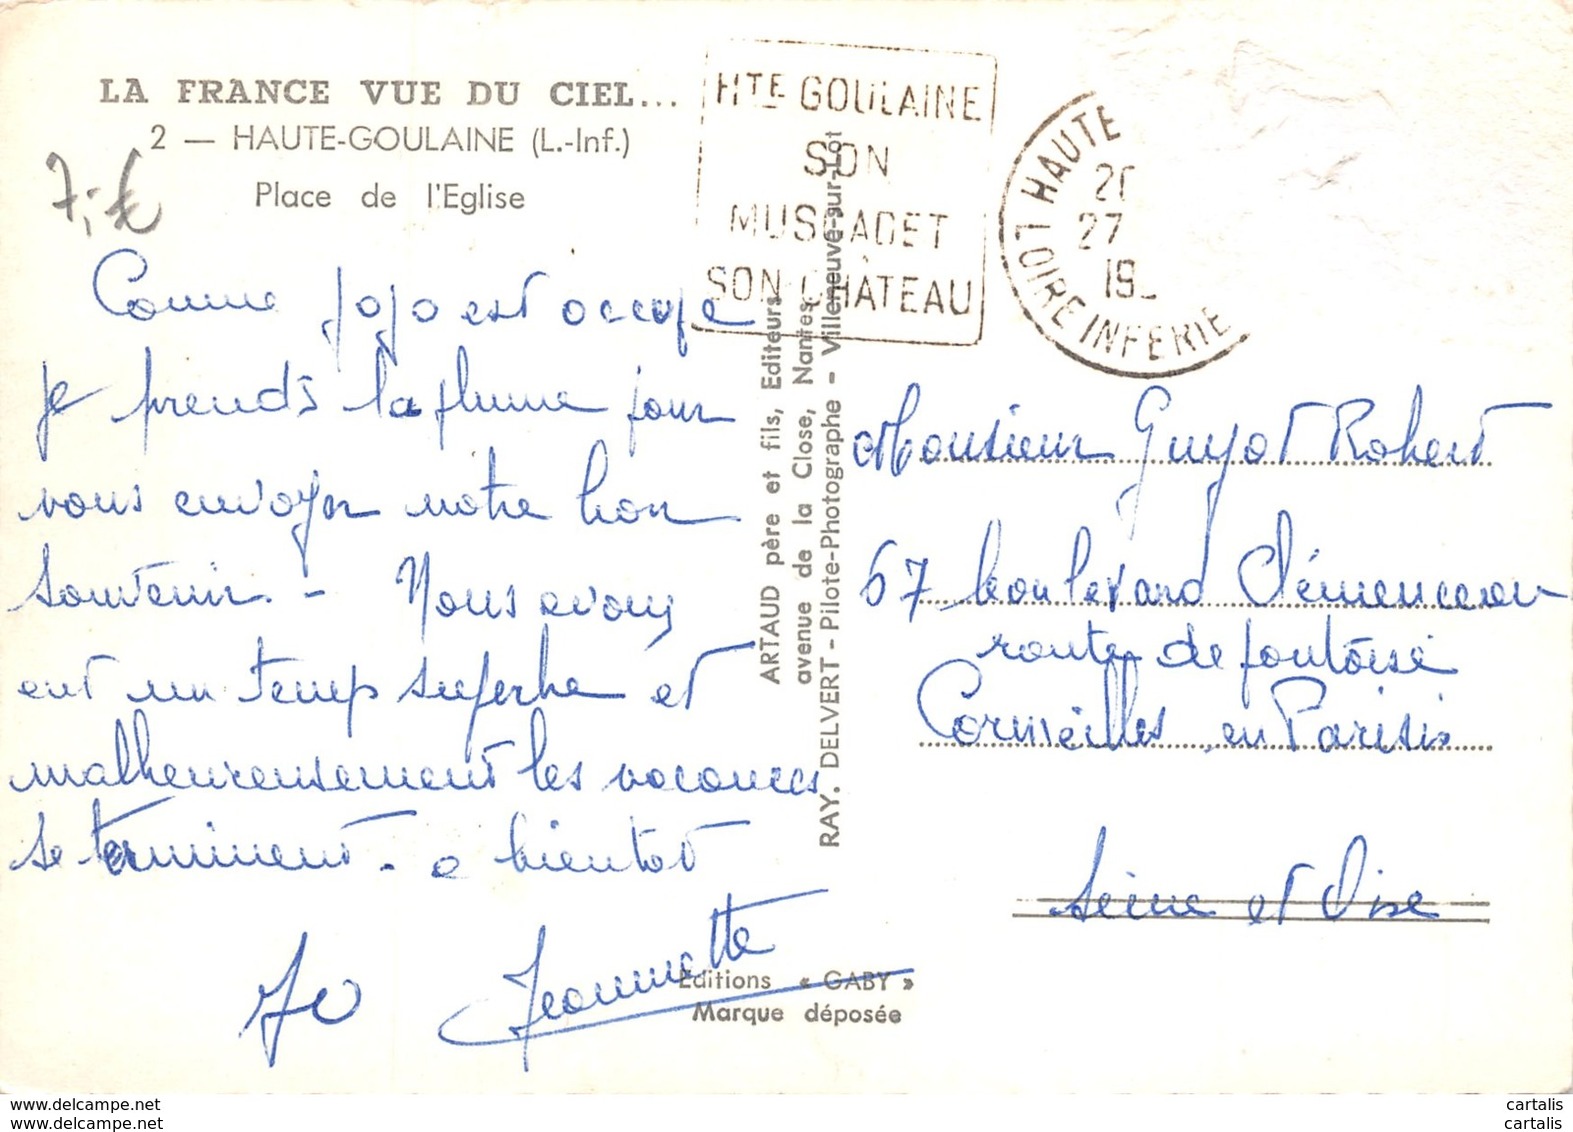 LA FRANCE VUE DU CIEL...
2 — HAUTE-GOULAINE (L.-Inf.)
Place de l'Eglise
7,-€
HTE GOULAINE
SON
MUSCADET
SON CHÂTEAU
HAUTE
27
19
LOIRE INFERIE
Comme Jojo est occupé
je prends la plume pour
vous envoyer notre bon
souvenir - Nous avons
eut un temps superbe et
malheureusement les vacances
se terminent - a bientot
Jo Jeannette
ARTAUD père et fils, Editeurs
avenue de la Close, Nantes
RAY. DELVERT - Pilote-Photographe - Villeneuve-sur-Lot
Editions « GABY »
Marque déposée
Monsieur Guyot Robert
67 boulevard Clémenceau
route de pontoise
Cormeilles en Parisis
Seine et Oise
www.delcampe.net
www.delcampe.net
cartalis
cartalis